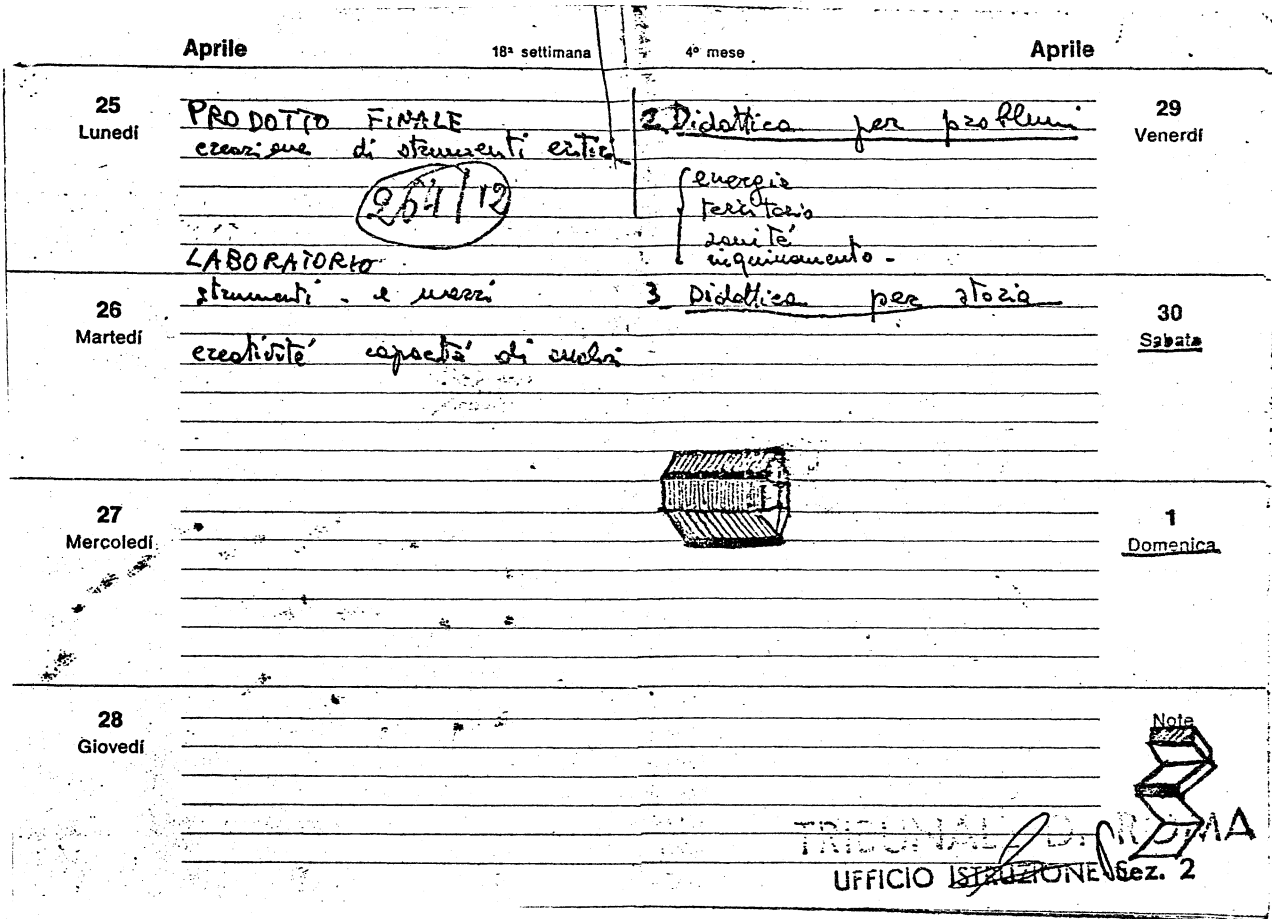 Aprile
18ª settimana
4º mese
Aprile
25
Lunedí
PRODOTTO FINALE
creazione di strumenti critici
264/12
LABORATORIO
26
Martedí
strumenti - e mezzi
creatività capacità di
27
Mercoledí
28
Giovedí
29
Venerdí
2. Didattica per problemi
energie
territorio
sanità
inquinamento -
30
Sabato
3 Didattica per storia
1
Domenica
Note
TRIBUNALE DI ROMA
UFFICIO ISTRUZIONE Sez. 2